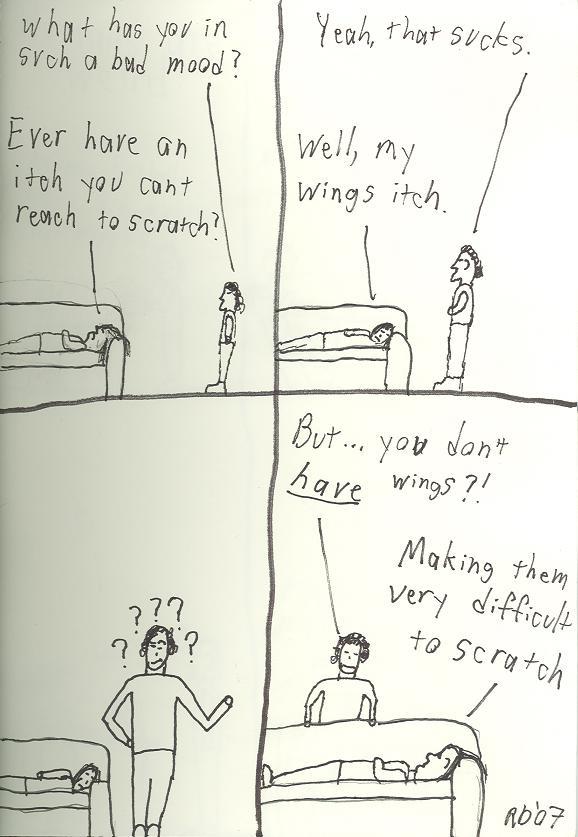 What has you in
such a bad mood?
Ever have an
itch you cant
reach to scratch?
Yeah, that sucks.
Well, my
wings itch.
? ? ? ? ?
But... you don't
have wings?!
Making them
very difficult
to scratch
RD'07